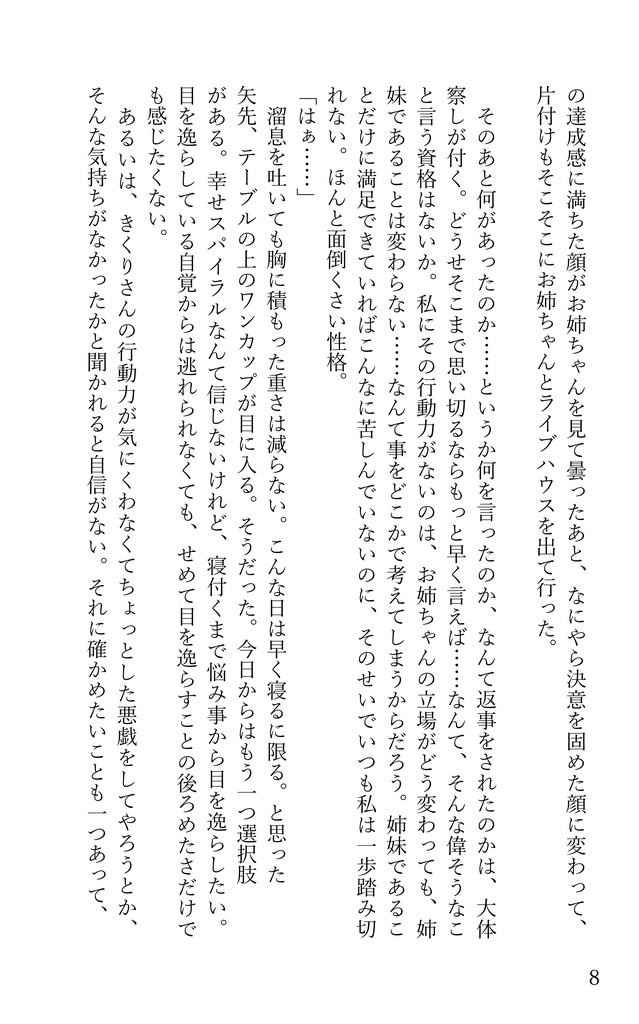 の達成感に満ちた顔がお姉ちゃんを見て曇ったあと、なにやら決意を固めた顔に変わって、
片付けもそこそこにお姉ちゃんとライブハウスを出て行った。
そのあと何があったのか……というか何を言ったのか、なんて返事をされたのかは、大体
察しが付く。どうせそこまで思い切るならもっと早く言えば……なんて、そんな偉そうなこ
と言う資格はないか。私にその行動力がないのは、お姉ちゃんの立場がどう変わっても、姉
妹であることは変わらない……なんて事をどこかで考えてしまうからだろう。姉妹であるこ
とだけに満足できていればこんなに苦しんでいないのに、そのせいでいつも私は一歩踏み切
れない。ほんと面倒くさい性格。
「はぁ……」
溜息を吐いても胸に積もった重さは減らない。こんな日は早く寝るに限る。と思った
矢先、テーブルの上のワンカップが目に入る。そうだった。今日からはもう一つ選択肢
がある。幸せスパイラルなんて信じないけれど、寝付くまで悩み事から目を逸らしたい。
目を逸らしている自覚からは逃れられなくても、せめて目を逸らすことの後ろめたさだけで
も感じたくない。
あるいは、きくりさんの行動力が気にくわなくてちょっとした悪戯をしてやろうとか、
そんな気持ちがなかったかと聞かれると自信がない。それに確かめたいことも一つあって、
8